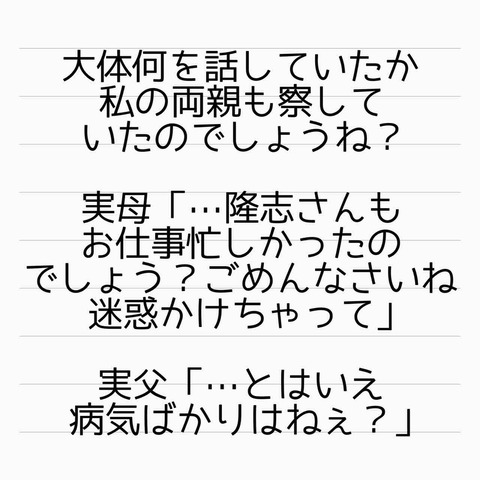 大体何を話していたか
私の両親も察して
いたのでしょうね？
実母「…隆志さんも
お仕事忙しかったの
でしょう？ごめんなさいね
迷惑かけちゃって」
実父「…とはいえ
病気ばかりはねぇ？」